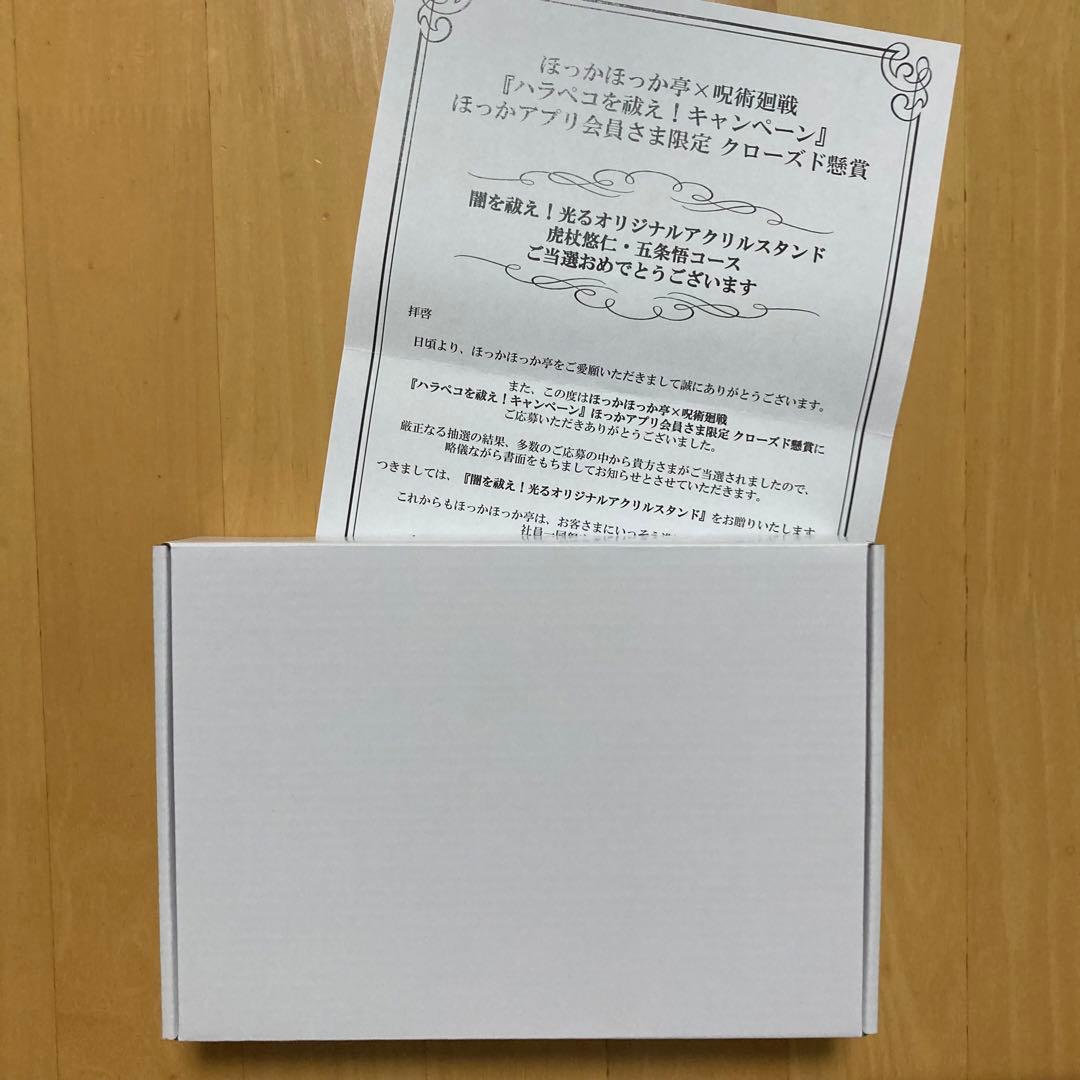 ほっかほっか亭×呪術廻戦
『ハラペコを祓え！キャンペーン』
ほっかアプリ会員さま限定 クローズド懸賞
闇を祓え！光るオリジナルアクリルスタンド
虎杖悠仁・五条悟コース
ご当選おめでとうございます
拝啓
日頃より、ほっかほっか亭をご愛願いただきまして誠にありがとうございます。
また、この度はほっかほっか亭×呪術廻戦
『ハラペコを祓え！キャンペーン』ほっかアプリ会員さま限定 クローズド懸賞に
ご応募いただきありがとうございました。
厳正なる抽選の結果、多数のご応募の中から貴方さまがご当選されましたので、
略儀ながら書面をもちましてお知らせとさせていただきます。
つきましては、『闇を祓え！光るオリジナルアクリルスタンド』をお贈りいたします
これからもほっかほっか亭は、お客さまにいっそう
社員一同